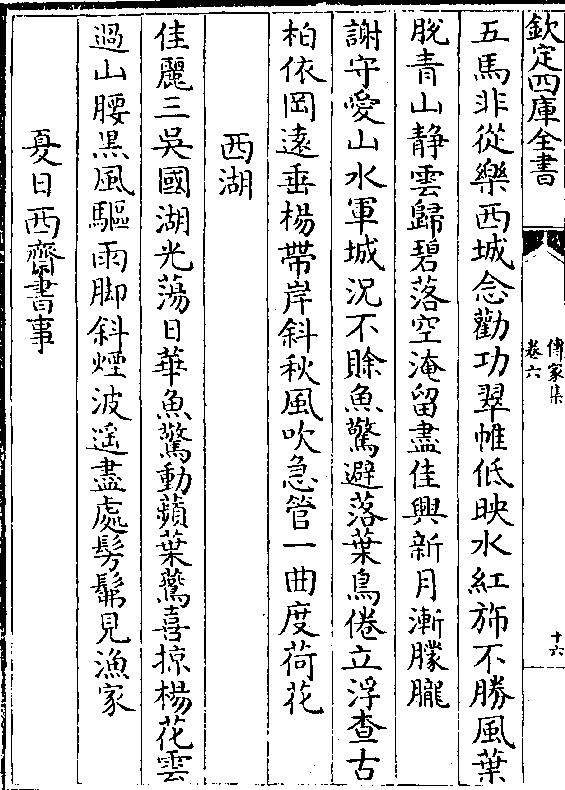 欽定四庫全書
傳家集
卷六
十六
五馬非從樂西城念勸功翠帷低映水紅斾不勝風葉
脫青山静雲歸碧落空淹留盡佳興新月漸朦朧
謝守愛山水軍城況不賒魚驚避落葉鳥倦立浮查古
柏依岡遠垂楊帶岸斜秋風吹急管一曲度荷花
西湖
佳麗三吳國湖光蕩日華魚驚動蘋葉鷰喜掠楊花雲
過山腰黒風驅雨脚斜煙波遥盡處髣髴見漁家
夏日西齋書事